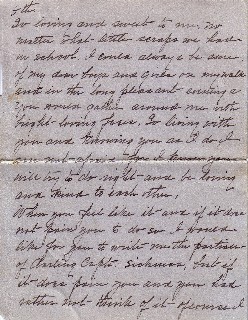 7th
So loving and sweet to me, no
matter what little scraps we had
in school, I could always be sure
of my dear boys and girls on my walk
and in the long pleasant evenings
you would gather around me with
bright loving faces, So living with
you and knowing you as I do I
am not afraid for I know you
will try to do right and be loving
and kind to each other,
When you feel like it and if it does
not pain you to do so I would
like for you to write me the particu
of Darling Capt sickness, but if
it does pain you and you had
rather not think of it of course I